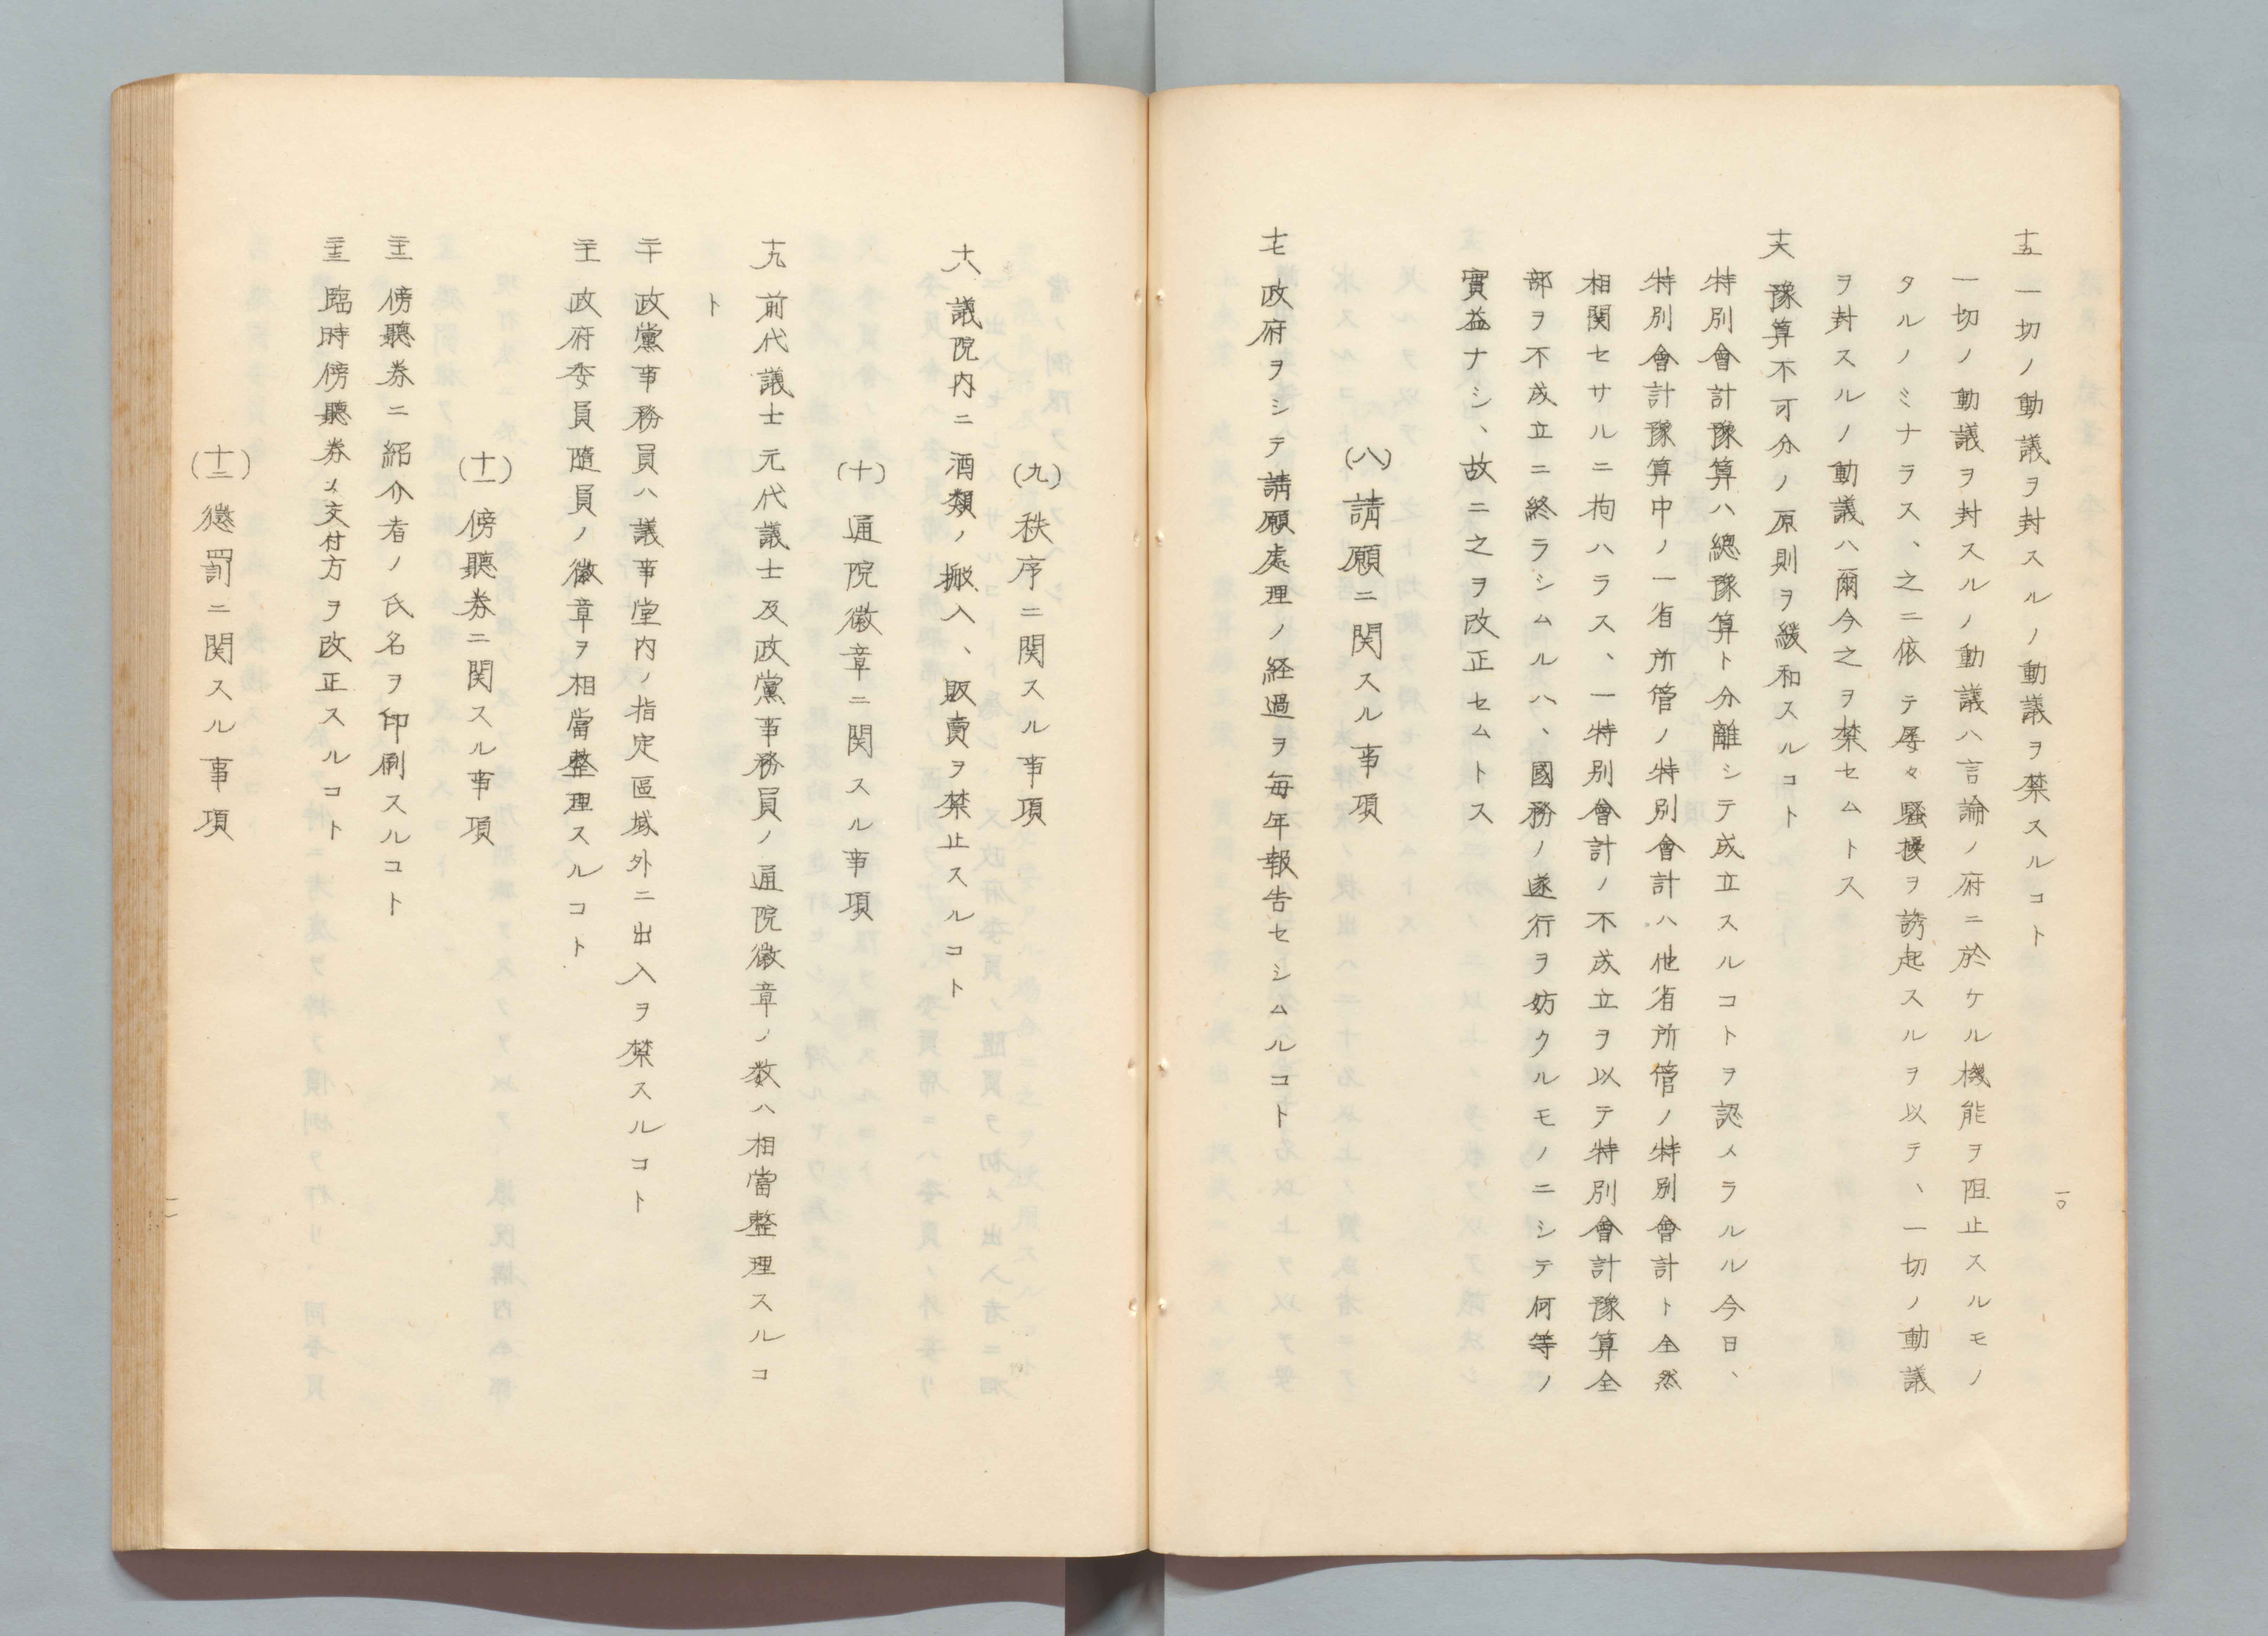 一〇
十五 一切ノ動議ヲ封スルノ動議ヲ禁スルコト
一切ノ動議ヲ封スルノ動議ハ言論ノ府ニ於ケル機能ヲ阻止スルモノ
タルノミナラス、之ニ依テ屡々騒擾ヲ誘起スルヲ以テ、一切ノ動議
ヲ封スルノ動議ハ爾今之ヲ禁セムトス
十六 豫算不可分ノ原則ヲ緩和スルコト
特別會計豫算ハ總豫算ト分離シテ成立スルコトヲ認メラルル今日、
特別會計豫算中ノ一省所管ノ特別會計ハ他省所管ノ特別會計ト全然
相関セサルニ拘ハラス、一特別會計ノ不成立ヲ以テ特別會計豫算全
部ヲ不成立ニ終ラシムルハ、國務ノ遂行ヲ妨クルモノニシテ何等ノ
實益ナシ、故ニ之ヲ改正セムトス
(八) 請願ニ関スル事項
十七 政府ヲシテ請願處理ノ経過ヲ毎年報告セシムルコト
(九) 秩序ニ関スル事項
十八 議院内ニ酒類ノ搬入、販賣ヲ禁止スルコト
(十) 通院徽章ニ関スル事項
十九 前代議士元代議士及政黨事務員ノ通院徽章ノ数ハ相當整理スルコ
ト
二十 政黨事務員ハ議事堂内ノ指定區域外ニ出入ヲ禁スルコト
二十一 政府委員隨員ノ徽章ヲ相當整理スルコト
(十一) 傍聽券ニ関スル事項
二十二 傍聽券ニ紹介者ノ氏名ヲ印刷スルコト
二十三 臨時傍聽券ノ交付方ヲ改正スルコト
(十二) 懲罰ニ関スル事項
一一